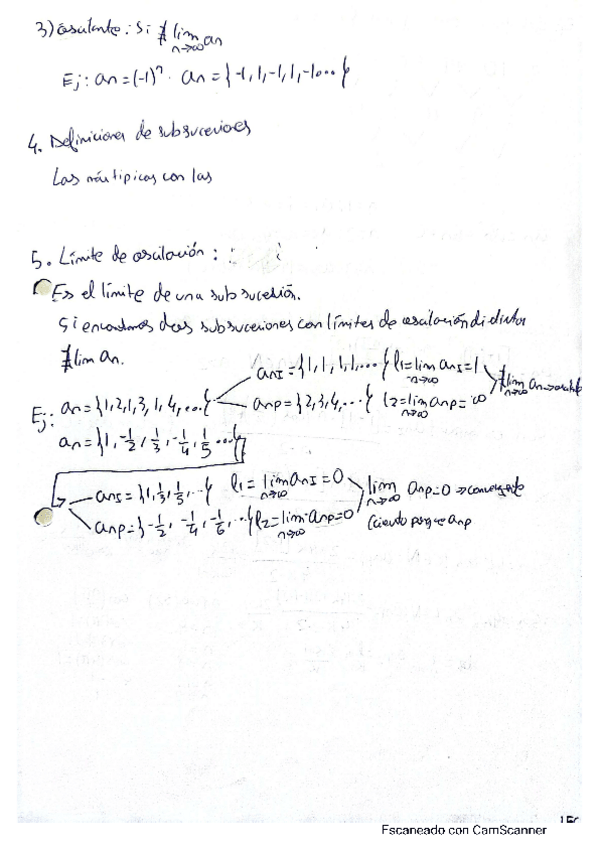 3) oscilante: Si ∄ lim an
n→∞
Ej: an=(-1)ⁿ. an = {-1,1,-1,1,-1...}
4. Definiciones de subsucesiones
Las más típicas con las
5. Límite de oscilación:
Es el límite de una subsucesión.
Si encontramos dos subsucesiones con límites de oscilación distintos
∄ lim an.
Ej: an={1,2,1,3,1,4,...} anI = {1,1,1,1,...} l1=lim anI=1
n→∞
anp = {2,3,4,...} l2=lim anp=∞
n→∞
∄ lim an → oscilante
n→∞
an={1,-1/2,1/3,-1/4,1/5...}
anI={1,1/3,1/5,...} l1=lim anI=0
n→∞
anp={-1/2,-1/4,-1/6,...} l2=lim anp=0
n→∞
lim anp=0 → convergente
n→∞
porque anp
Escaneado con CamScanner